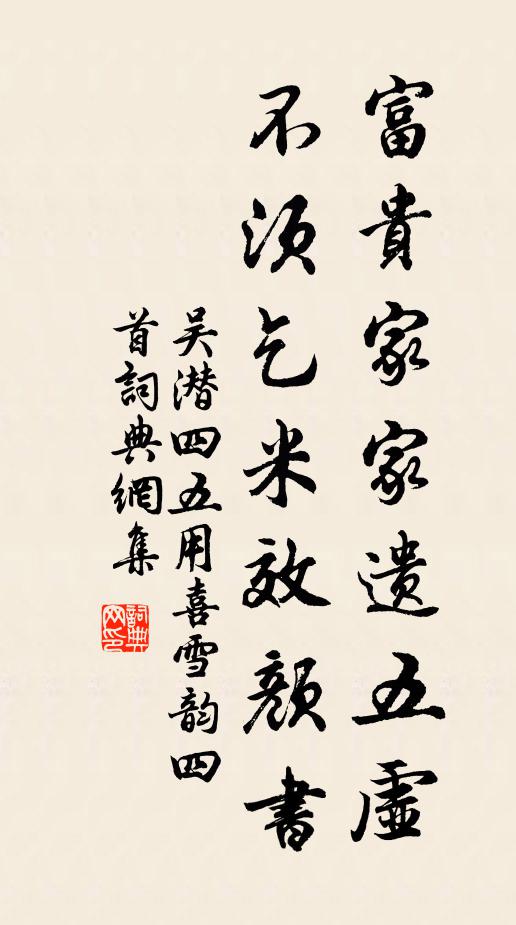 富貴家家遺五虛
不須乞米效顏書
吴潜四五用喜雪韵四
首詞典網集
詞典
网印